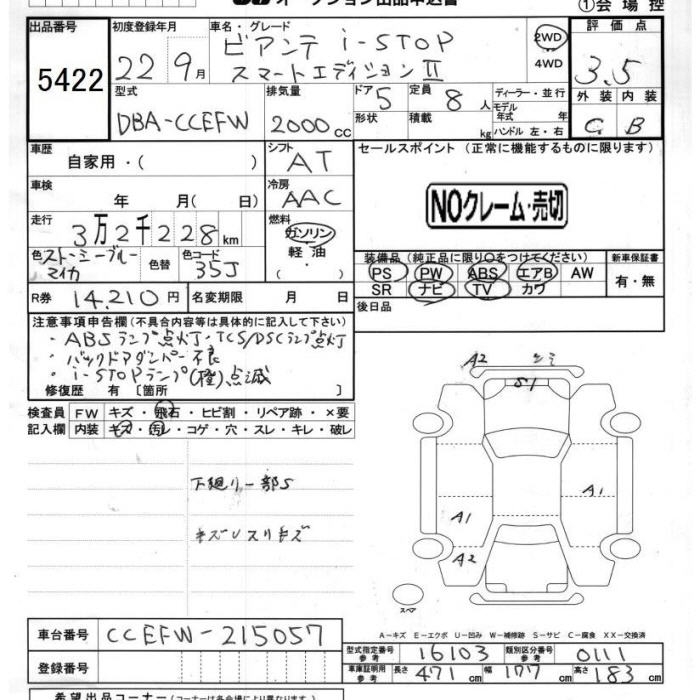 オークション出品申込書
①会場控
出品番号 初度登録年月 車名・グレード 評価点
5422 22年9月 ビアンテ i-STOP 2WD
スマートエディションⅡ 4WD 3.5
型式 排気量 ドア 5 定員 8人 ディーラー・並行 外装 内装
DBA-CCEFW 2000cc 形状 積載 kg モデル年式 年式 C B
ハンドル 左・右
車歴 自家用・( ) シフト AT セールスポイント (正常に機能するものに限ります)
車検 年 月( 日) 冷房 AAC
NOクレーム・売切
走行 3万2千228km 燃料 ガソリン
軽油
色 ストーミーブルーマイカ 色替 色コード 35J
装備品 (純正品に限り○をつけてください) 新車保証書
PS PW ABS エアB AW 有・無
SR ナビ TV カワ
R券 14,210円 名変期限 月 日 後日品
注意事項申告欄 (不具合内容等は具体的に記入して下さい)
・ABSランプ点灯・TCS/DSCランプ点灯
・バックドアダンパー不良
・i-STOPランプ(橙)点滅
修復歴 有 [箇所 ]
検査員 FW キズ・飛石・ヒビ割・リペア跡・×要
記入欄 内装 キズ・汚レ・コゲ・穴・スレ・キレ・破レ
下廻り一部S
キズ スリキズ
A2
S1
A1
A1
A2
スペア
A-キズ E-エクボ U-凹み W-補修跡 S-サビ C-腐食 XX-交換済
車台番号 CCEFW-215057
登録番号
型式指定番号 参考 16103 類別区分番号 参考 0111
車庫証明用 参考 長さ 471cm 幅 177cm 高さ 183cm
希望出品コーナー (コーナーは各会場により異なります)